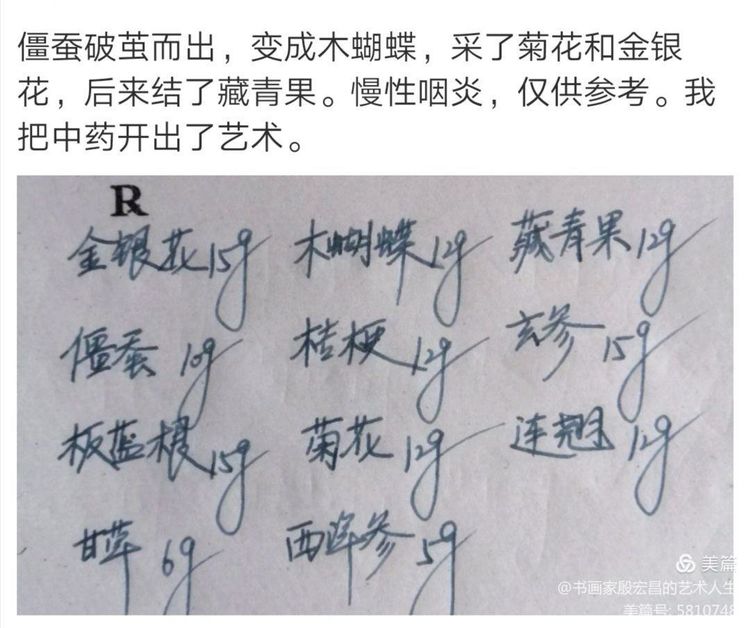 僵蚕破茧而出，变成木蝴蝶，采了菊花和金银
花，后来结了藏青果。慢性咽炎，仅供参考。我
把中药开出了艺术。
R
金银花15g 木蝴蝶12g 藏青果12g
僵蚕10g 桔梗12g 玄参15g
板蓝根15g 菊花12g 连翘12g
甘草6g 西洋参5g
美篇
@书画家殷宏昌的艺术人生
美篇号: 5810748